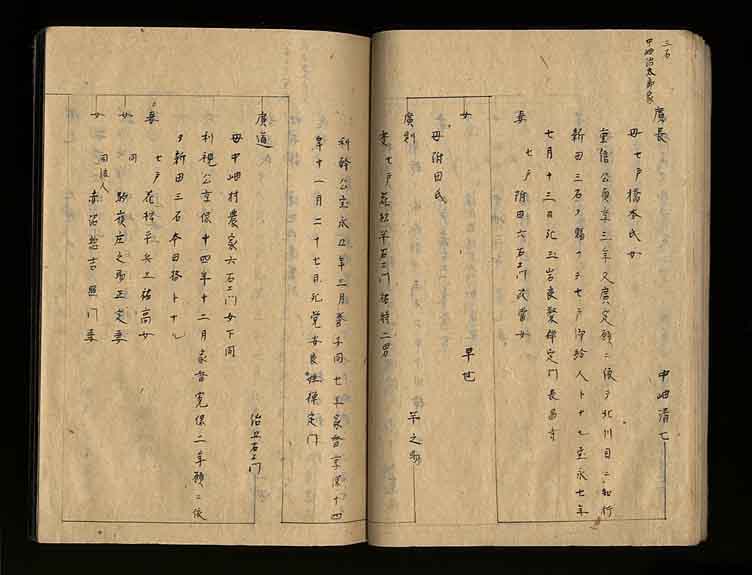 三石
中岫治太郎家
廣長
中岫清七
母七戸橋本氏女
重信公貞享三年父廣定願ニ依テ北川目ニ知行
新田三石ヲ賜フテ七戸御給人トナル宝永七年
七月十三日死三岩良繁禅定門長昌寺
妻
七戸附田六右エ門女
女
早世
母附田氏
廣則
平之助
実七戸花松平右エ門二男
利幹公宝永五年三月養子同七年家督享保十四
年十一月二十七日死覚安良禅定門
廣道
治五右エ門
母中岫村農家六右エ門女下同
利視公享保十四年十二月家督寛保二年願ニ依
テ新田三石本田格トナル
妻
七戸花松平兵エ祐高女
女
同
駒嶺庄之助正定妻
女
同法人
赤沼惣吉 妻